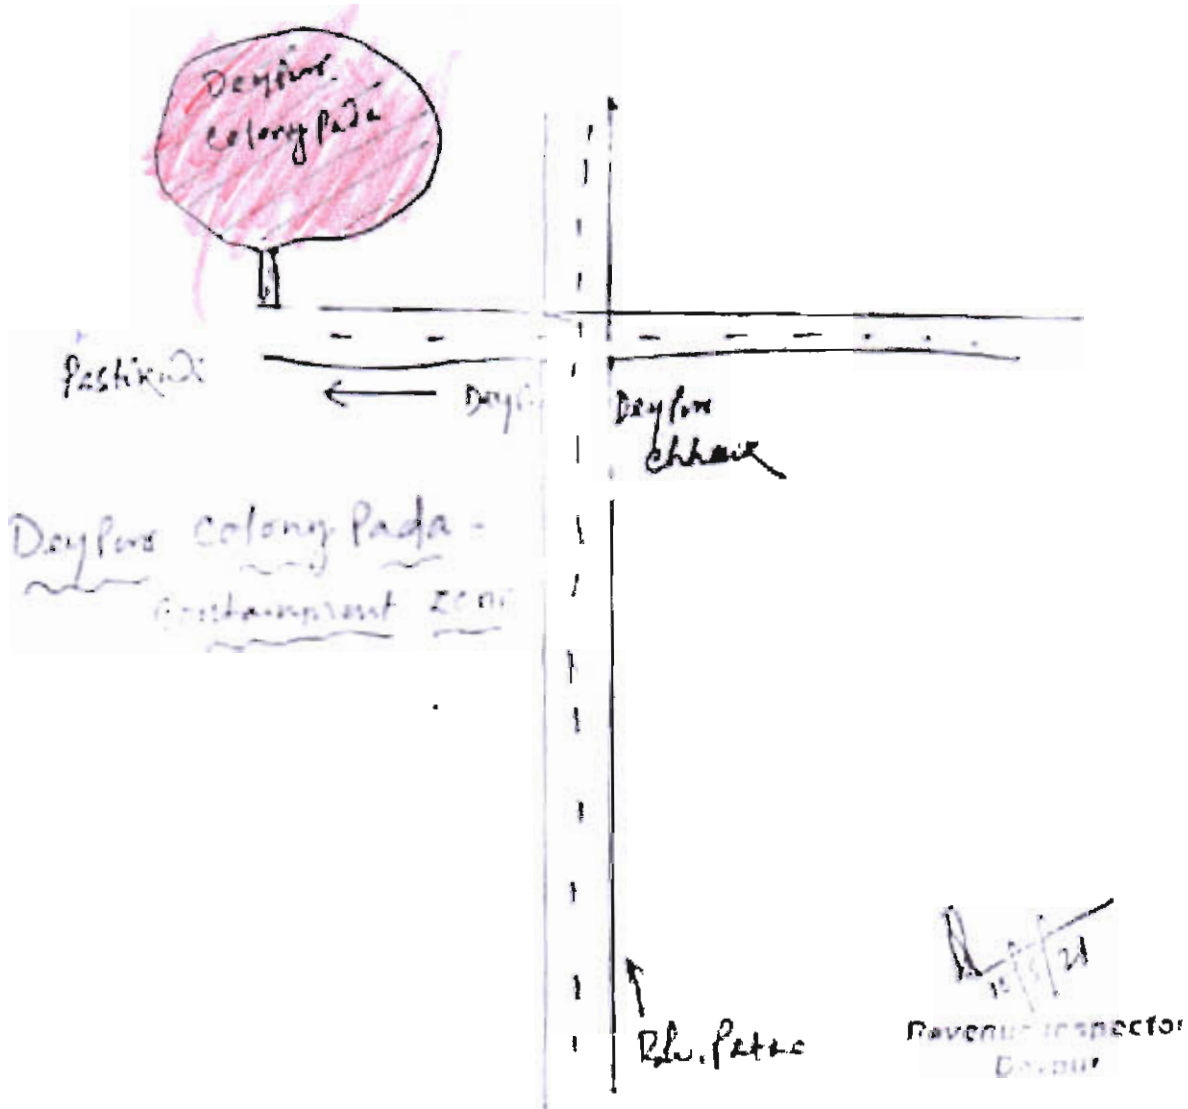 Deypur
Colony Pada
Pastikudi
← Deypur
Deypur
Chhak
Deypur Colony Pada -
Containment Zone
21
Revenue Inspector
Deypur